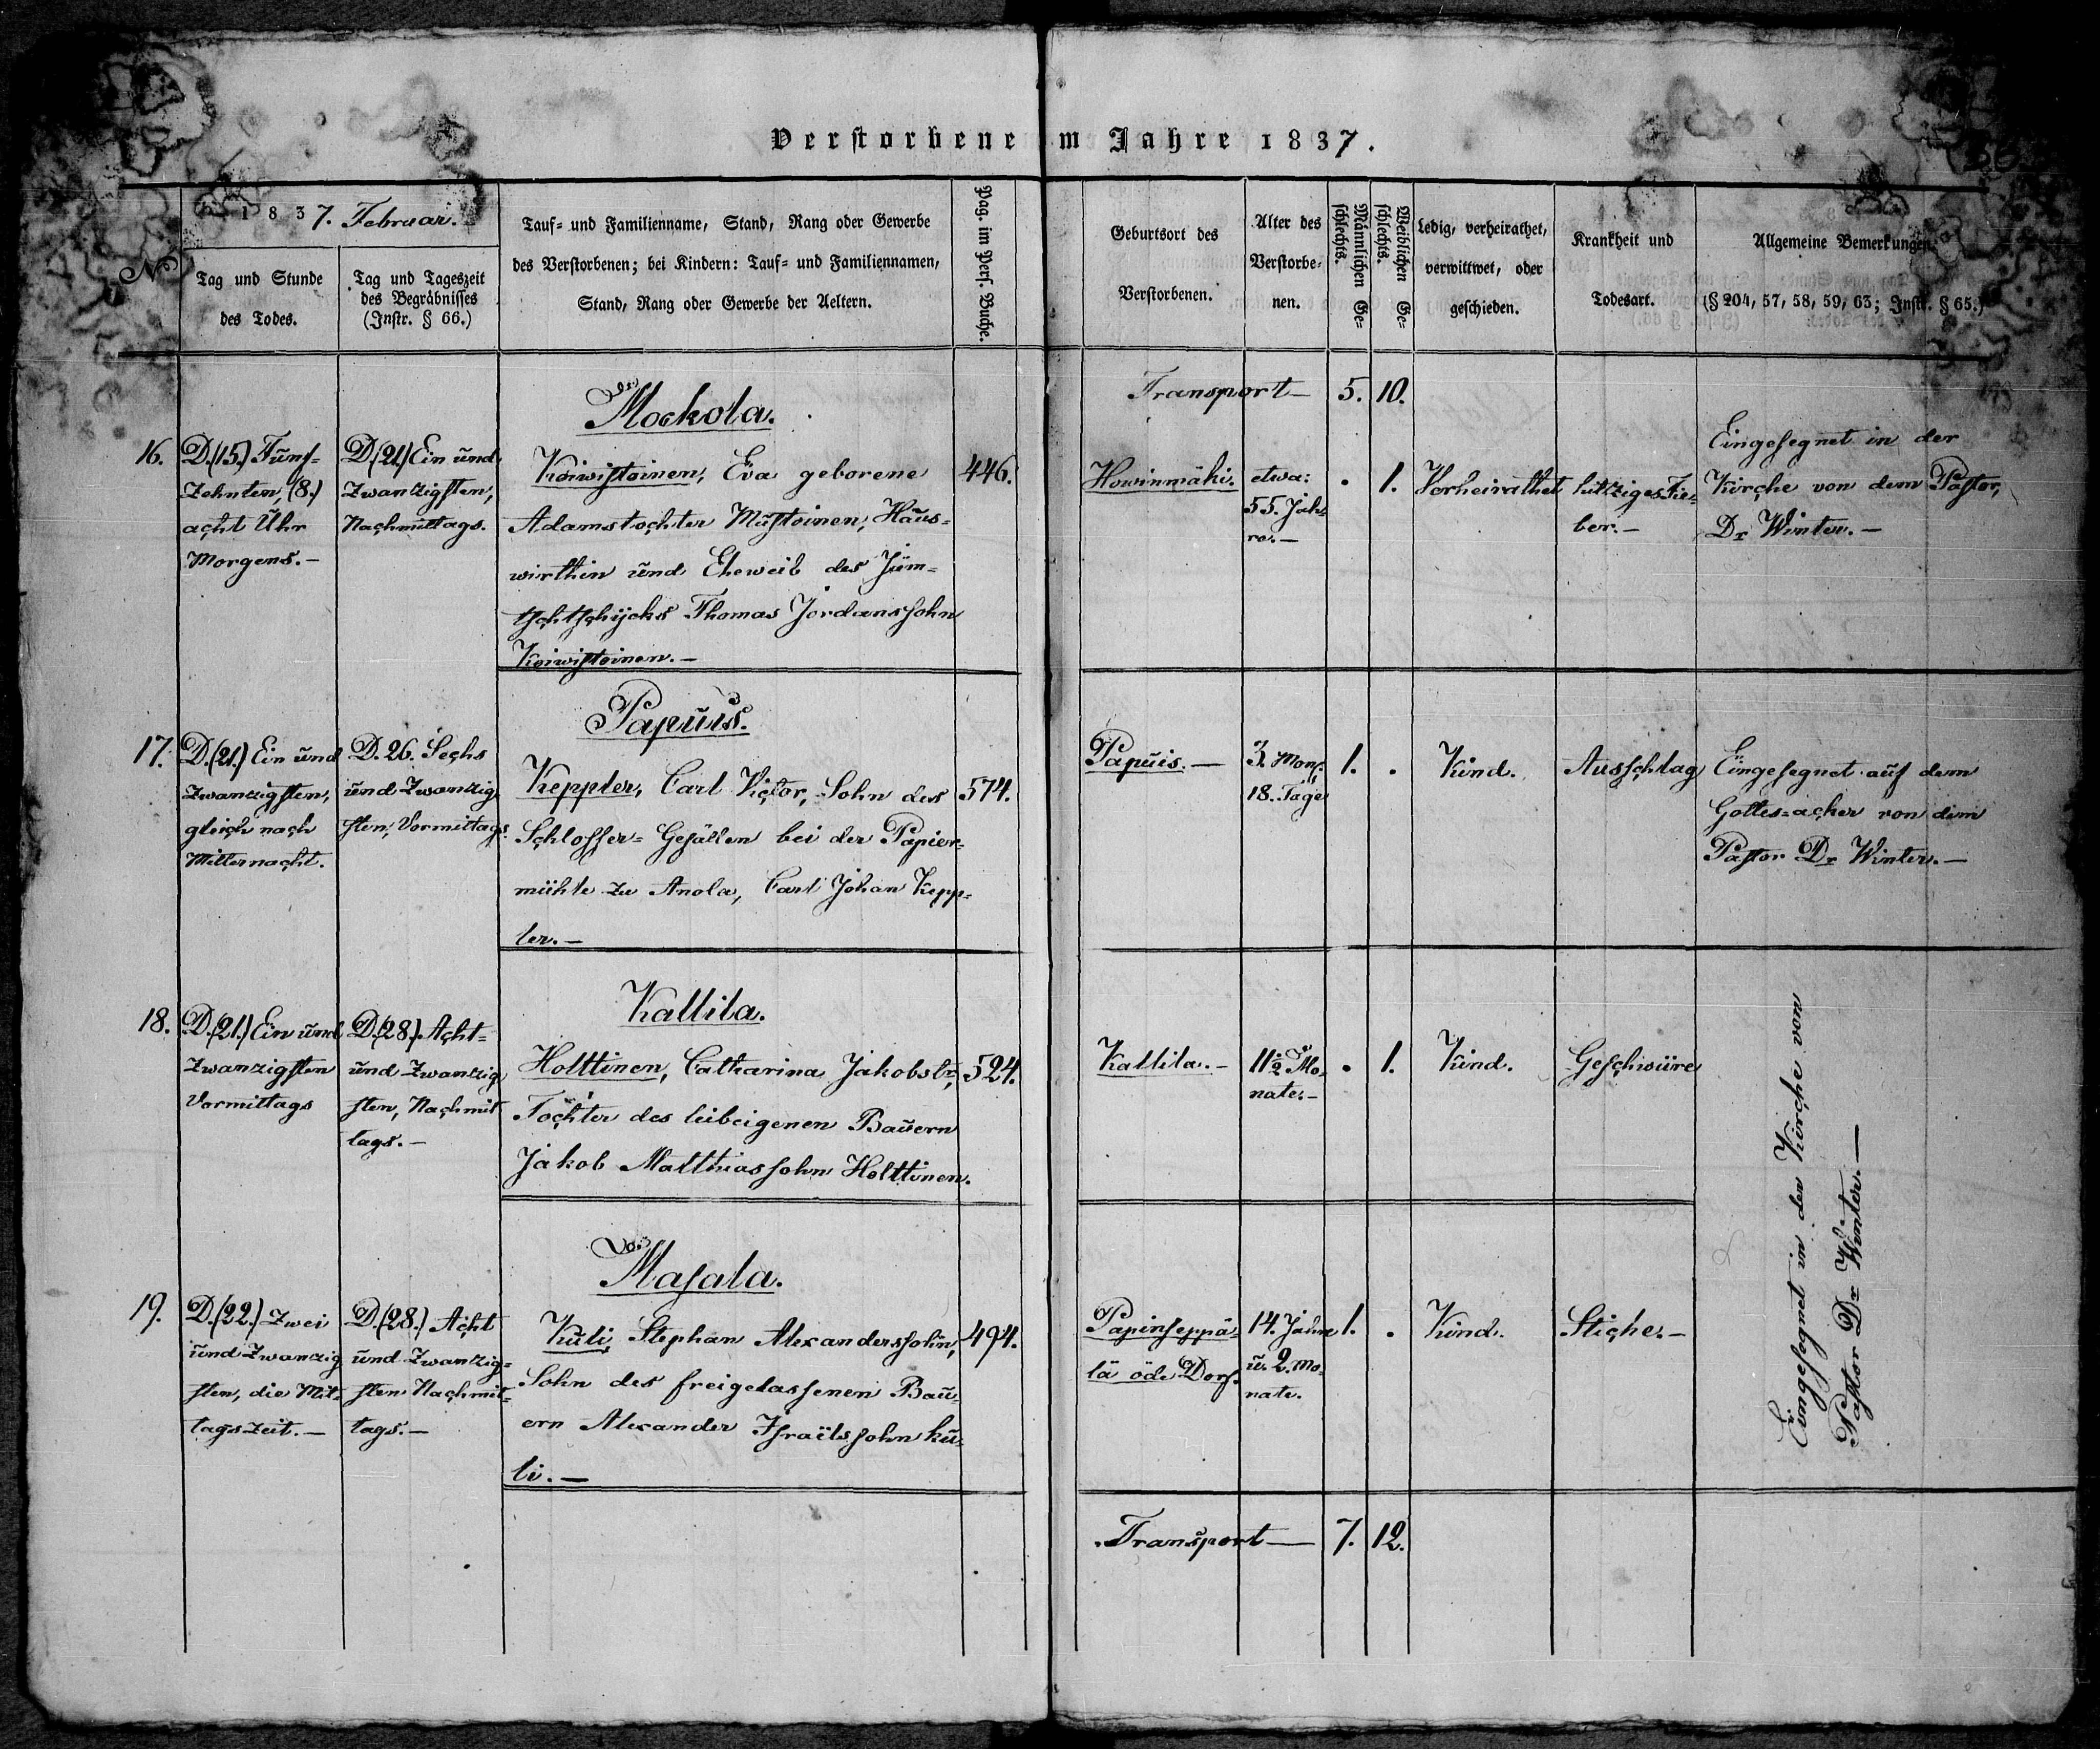 Verstorbene im Jahre 1837.
1837. Februar.
No
Tag und Stunde
des Todes.
Tag und Tageszeit
des Begräbnisses
(Instr. § 66.)
Tauf= und Familienname, Stand, Rang oder Gewerbe
des Verstorbenen; bei Kindern: Tauf= und Familiennamen,
Stand, Rang oder Gewerbe der Aeltern.
Pag. im Pers. Buche.
Geburtsort des
Verstorbenen.
Alter des
Verstorbe-
nen.
Männlichen Ge=
schlechts.
Weiblichen Ge=
schlechts.
Ledig, verheirathet,
verwittwet, oder
geschieden.
Krankheit und
Todesart.
Allgemeine Bemerkungen.
(§ 204, 57, 58, 59, 63; Instr. § 65.)
Transport— 5. 10.
Mockola.
16.
D.(15.) Fünf-
zehnten, (8.)
acht Uhr
Morgens.—
D.(21.) Ein und
zwanzigsten,
Nachmittags.
Koiwistoinen, Eva geborene
Adamstochter Mustoinen, Haus=
wirthin und Eheweib des Jäm=
tschtschijcks Thomas Jordanssohn
Koiwistoinen.—
446.
Howinmäki.
etwa:
55. Jah-
re.—
. 1.
Verheirathet
hitziges Fie-
ber.—
Eingesegnet in der
Kirche von dem Pastor,
Dr Winter.—
Papuis.
17.
D.(21.) Ein und
zwanzigsten,
gleich nach
Mitternacht.
D. 26. Sechs
und zwanzig-
sten, Vormittags.
Keppler, Carl Victor, Sohn des
Schlosser= Gesällen bei der Papier=
mühle zu Anola, Carl Johan Kepp=
ler.—
574.
Papuis.—
3. Mon.
18. Tage
1. .
Kind.
Ausschlag
Eingesegnet auf dem
Gottes=acker von dem
Pastor Dr Winter.—
Kallila.
18.
D.(21.) Ein und
zwanzigsten
Vormittags
D.(28.) Acht=
und zwanzig-
sten, Nachmit
tags.—
Holttinen, Catharina Jakobstr,
Tochter des leibeigenen Bauern
Jakob Matthiassohn Holttinen.
524.
Kallila.—
11½ Mo-
nate.—
. 1.
Kind.
Geschwüre
Eingesegnet in der Kirche von
Pastor Dr Winter.—
Masala.
19.
D.(22.) Zwei
und zwanzig
sten, die Mit-
tagszeit.—
D.(28.) Acht
und zwanzig=
sten Nachmit-
tags.—
Kuli, Stephan Alexanderssohn,
Sohn des freigelassenen Bau-
ern Alexander Israëlssohn Ku-
li.—
494.
Papinseppä-
lä öde Dorf.
14. Jahre
u. 2. Mo-
nate.
1. .
Kind.
Stiche.—
Transport— 7. 12.